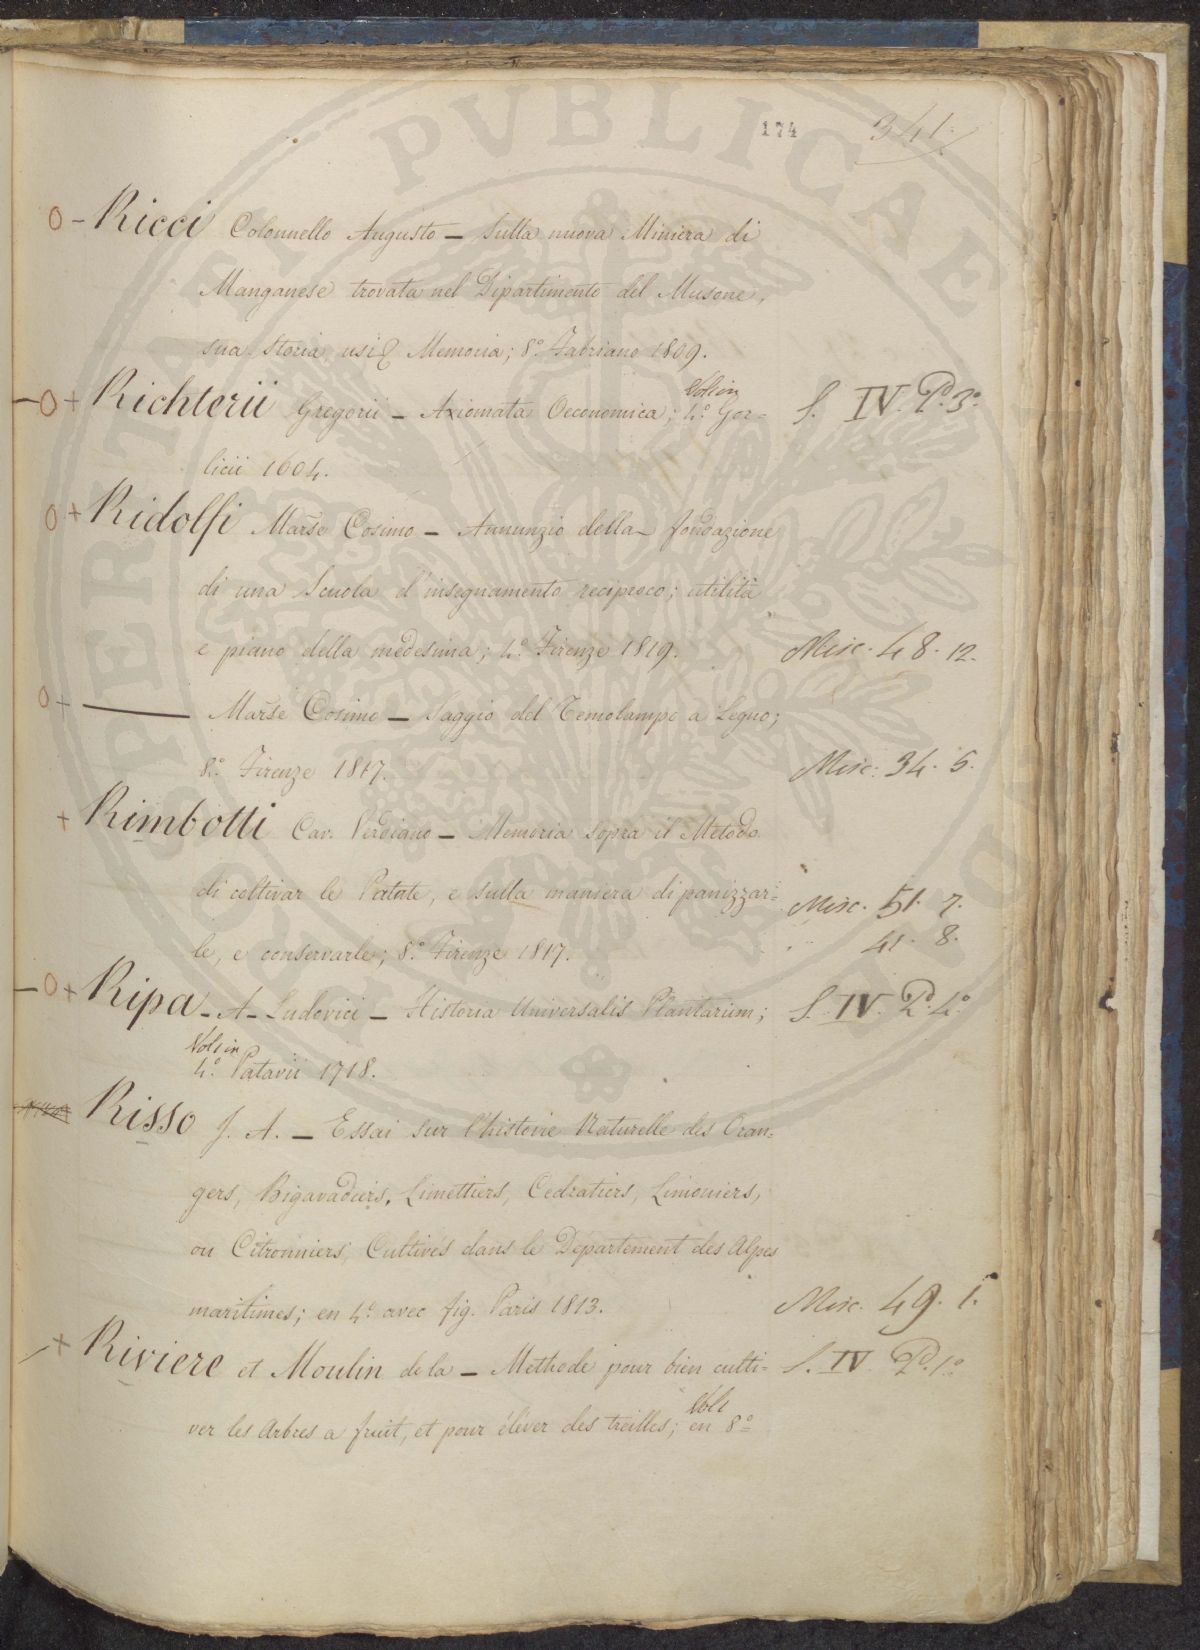 174
341.
O - Ricci Colonnello Augusto – Sulla nuova Miniera di
Manganese trovata nel Dipartimento del Musone,
sua storia usi & Memoria; 8.º Fabriano 1809.
– O + Richterii Gregorii – Axiomata Oeconomica; Vol. 1 in 4.º Gor= S. IV. P.º 3º
licii 1604.
O + Ridolfi Marse Cosimo – Annunzio della fondazione
di una Scuola d'insegnamento reciproco; utilità
e piano della medesima; 4.º Firenze 1819. Misc. 48. 12.
O + —— Marse Cosimo – Saggio del Temolampo a Legno;
8.º Firenze 1817. Misc: 34. 5.
+ Rimbotti Cav. Verdiano – Memoria sopra il Metodo
di coltivar le Patate, e sulla maniera di panizzar= Misc. 51. 7.
le, e conservarle; 8.º Firenze 1817. 41. 8.
– O + Ripa – A – Ludovici – Historia Universalis Plantarum; S. IV. P.º 4.º
Vol. 1 in 4.º Patavii 1718.
Risso J. A. – Essai sur l'histoire Naturelle des Oran=
gers, Bigaradiers, Limettiers, Cedratiers, Limoniers,
ou Citronniers, Cultivés dans le Département des Alpes
maritimes; en 4.º avec fig. Paris 1813. Misc. 49. 1.
+ Riviere et Moulin de la – Methode pour bien culti= S. IV P.º 1.º
ver les Arbres a fruit, et pour éléver des treilles; Vol. 1 en 8º=
PVBLICAE